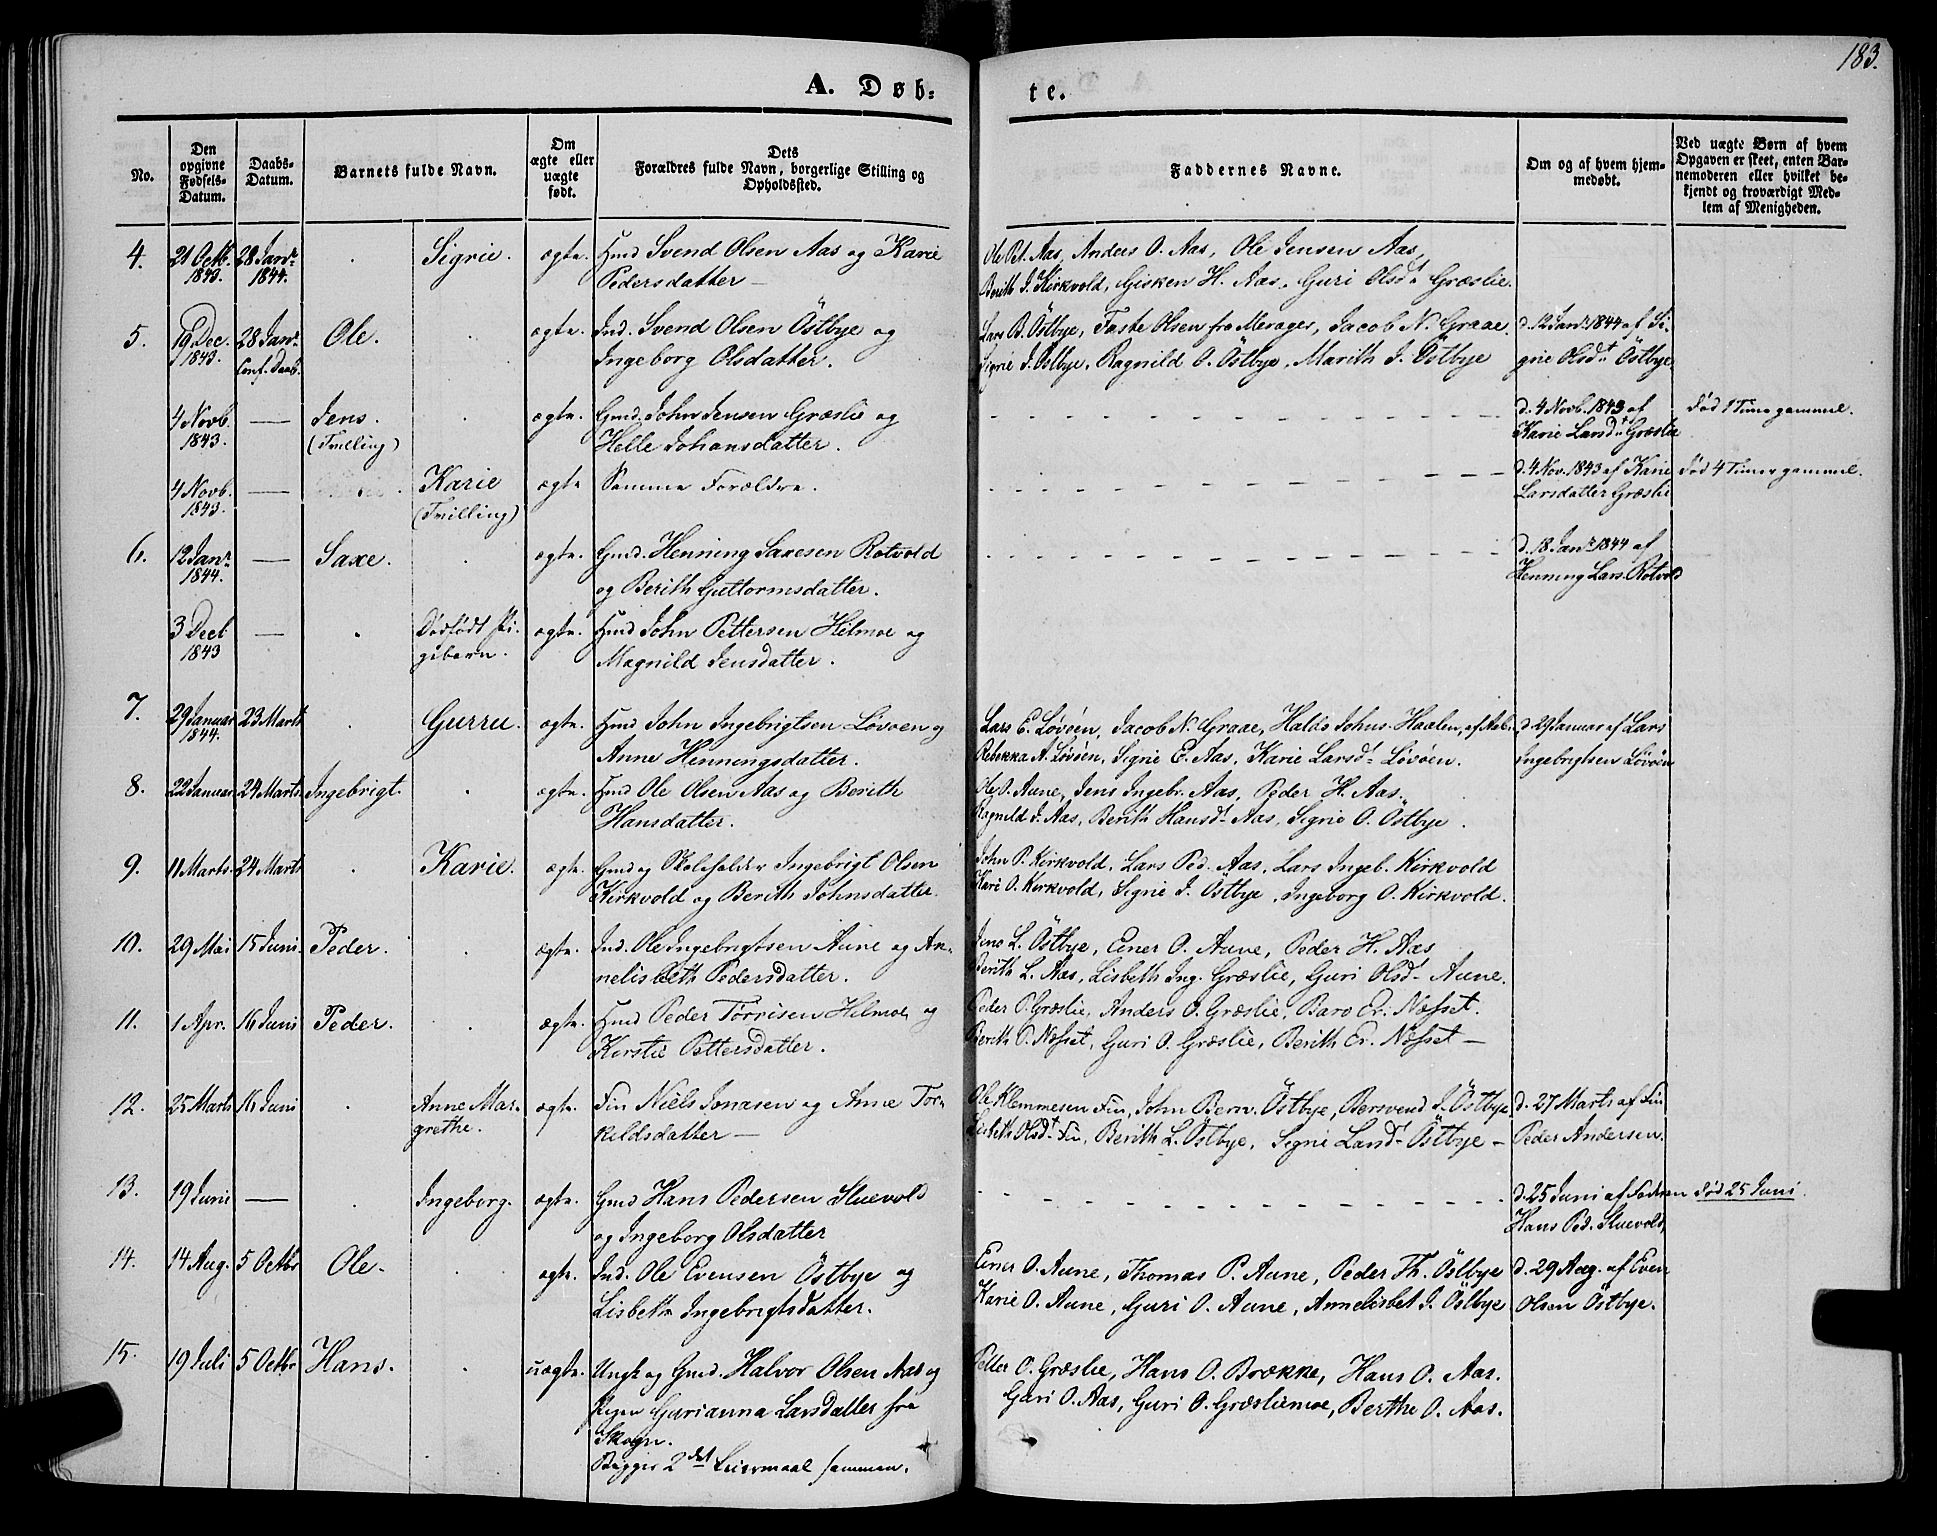 183.
A. Døb=
te.
No.
Den opgivne Fødsels-Datum.
Daabs-Datum.
Barnets fulde Navn.
Om ægte eller uægte født.
Dets Forældres fulde Navn, borgerlige Stilling og Opholdssted.
Faddernes Navne.
Om og af hvem hjemmedøbt.
Ved uægte Børn af hvem Opgaven er skeet, enten Barnemoderen eller hvilket bekjendt og troværdigt Medlem af Menigheden.
4. 21 Octb. 28 Janr. Sigrie. ægte. Hmd Svend Olsen Aas og Karie Ole Pet. Aas, Anders O. Aas, Ole Jensen Aas,
1843. 1844. Pedersdatter — Berith J. Kirkvold, Gisken H. Aas, Guri Olsdt Græslie.
5. 19 Dec. 28 Janr. Ole. ægte. Ind. Svend Olsen Östbye og Lars B. Östbye, Taste Olsen fra Merager, Jacob N. Graae. d. 12 Janr. 1844 af Si-
1843. Conf. Daab. Ingeborg Olsdatter. Sigrie J. Östbye, Ragnild O. Östbye, Marith J. Östbye grie Olsdt Östbye
4 Novb. — Jens. ægte. Gmd. John Jensen Græslie og d. 4 Novb. 1843 af Död 1 Time gammel.
1843. (Tvilling) Helle Johansdatter. Karie Larsdt Græslie
4 Novb. — Karie ægte Samme Forældre. d. 4 Nov. 1843 af Karie Död 4 Timer gammel.
1843. (Tvilling) Larsdatter Græslie
6. 12 Janr. — Saxe. ægte. Gmd. Henning Saxesen Rotvold d. 18 Janr. 1844 af
1844. og Berith Guttormsdatter. Henning Lars. Rotvold
3 Decb. — Dödfödt Pi- ægte. Hmd John Pettersen Hilmoe og
1843 gebarn. Magnild Jensdatter.
7. 29 Januar 23 Marts Gurru. ægte. Hmd John Ingebrigtsen Lövöen og Lars E. Lövöen, Jacob N. Graae, Haldo Johns. Haalen, d. 29 Januar af Lars
1844. Anne Henningsdatter. Rebekka A. Lövöen, Sigrie E. Aas, Karie Larsdt Lövöen. Ingebrigtsen Lövöen
8. 22 Januar 24 Marts Ingebrigt. ægte. Hmd Ole Olsen Aas og Berith Ole O. Aune, Jens Ingebr. Aas, Peder H. Aas.
Hansdatter. Ragnild J. Aas, Berith Hansdt Aas, Sigrie O. Östbye.
9. 11 Marts. 24 Marts Karie. ægte. Gmd og Skoleholder Ingebrigt Olsen John P. Kirkvold, Lars Ped. Aas, Lars Ingeb. Kirkvold
Kirkvold og Berith Johnsdatter. Kari O. Kirkvold, Sigrie J. Östbye, Ingeborg O. Kirkvold.
10. 29 Mai 15 Juni Peder. ægte. Ind. Ole Ingebrigtsen Aune og An- Jens L. Östbye, Einer O. Aune, Peder H. Aas
nelisbeth Pedersdatter. Berith L. Aas, Lisbeth Ing. Græslie, Guri Olsdt Aune.
11. 1 Apr. 16 Juni Peder. ægte. Hmd Peder Torrisen Hilmoe og Peder P. Græslie, Anders O. Græslie, Baro Er. Næsset.
Kerstie Pettersdatter. Berith P. Næsset, Guri O. Græslie, Berith Er. Næsset —
12. 25 Marts 16 Juni Anne Mar- ægte. Fin Niels Jonasen og Anne Tor- Ole Klemmesen Fin, John Bern. Östbye, Bersvend J. Östbye d. 27 Marts af Fin
grethe. kildsdatter — Lisbeth Olsdt Fin, Berith L. Östbye, Sigrie Larsdt Östbye — Peder Andersen.
13. 19 Juni — Ingeborg. ægte. Gmd Hans Pedersen Stuevold d. 25 Juni af Faderen död 25 Juni.
og Ingeborg Olsdatter Hans Ped. Stuevold,
14. 14 Aug. 5 Octbr Ole. ægte. Ind. Ole Evensen Östbye og Einer O. Aune, Thomas P. Aune, Peder Th. Östbye d. 29 Aug. af Even
Lisbeth Ingebrigtsdatter. Karie O. Aune, Guri O. Aune, Annelisbet J. Östbye Olsen Östbye.
15. 19 Juli 5 Octbr Hans. uægte. Ungk og Gmd. Halvor Olsen Aas og Petter O. Græslie, Hans O. Brække, Hans O. Aas.
Pigen Gurianna Larsdatter fra Guri O. Aas, Guri O. Græsliemoe, Berthe O. Aas.
Skogn.
Begges 2det Leiermaal sammen.